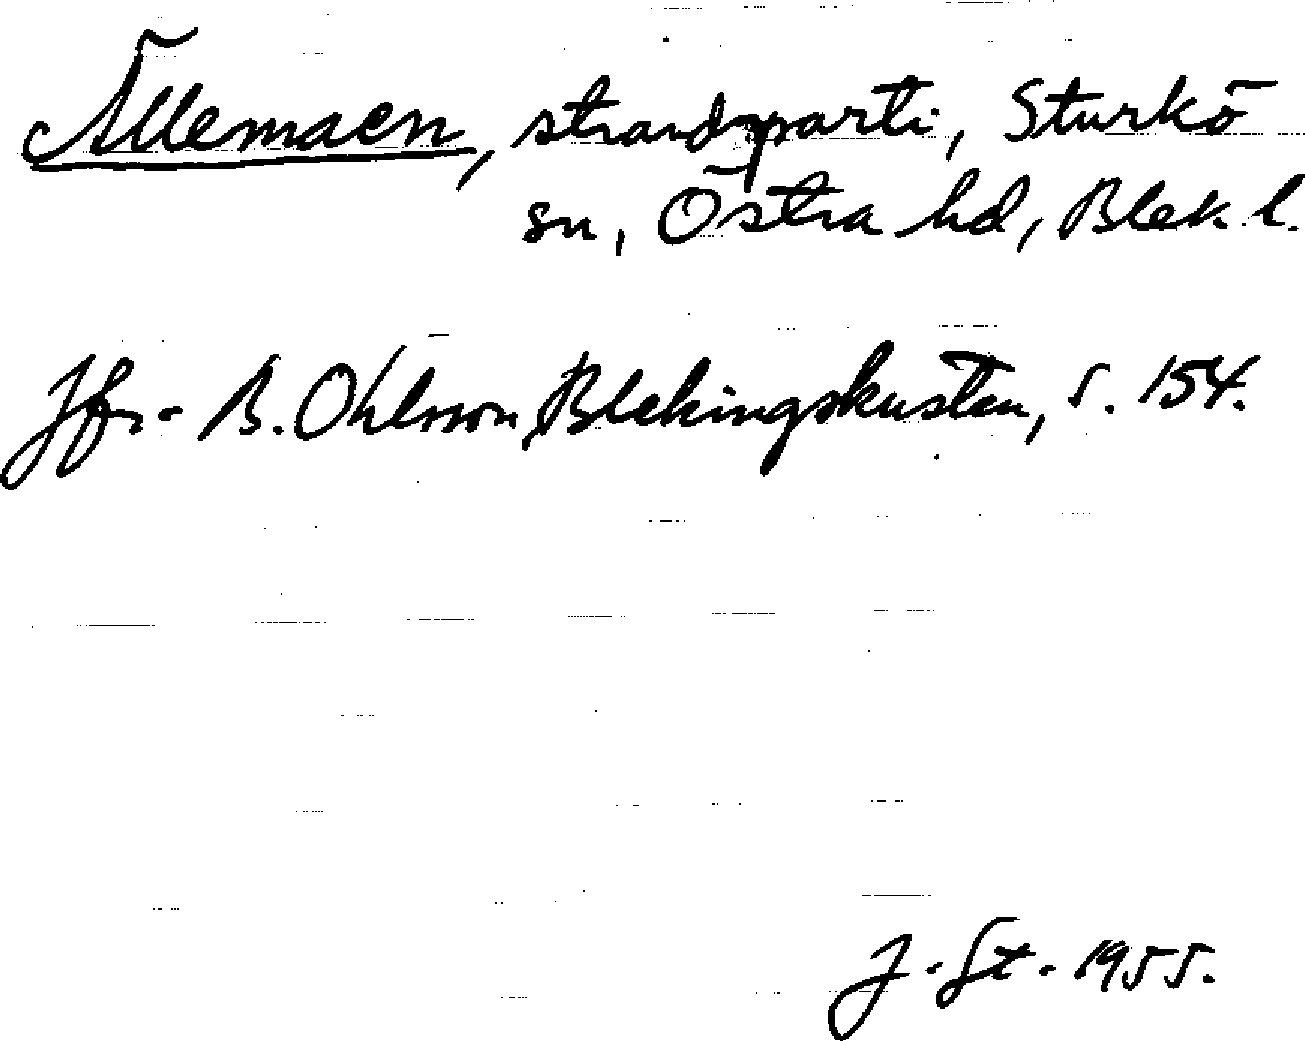 Ällemaen, strandparti, Sturkö
sn, Östra hd, Blek. l.
Jfr. B. Ohlsson, Blekingskusten, s. 154.
J. St. 1955.